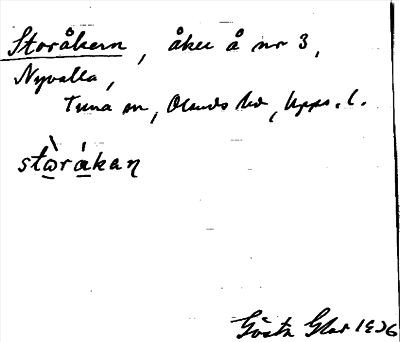 Storåkern, åker å nr 3,
Nyvalla,
Tuna sn, Olands hd, Upps. l.
stòrákaɳ
Gösta 1926